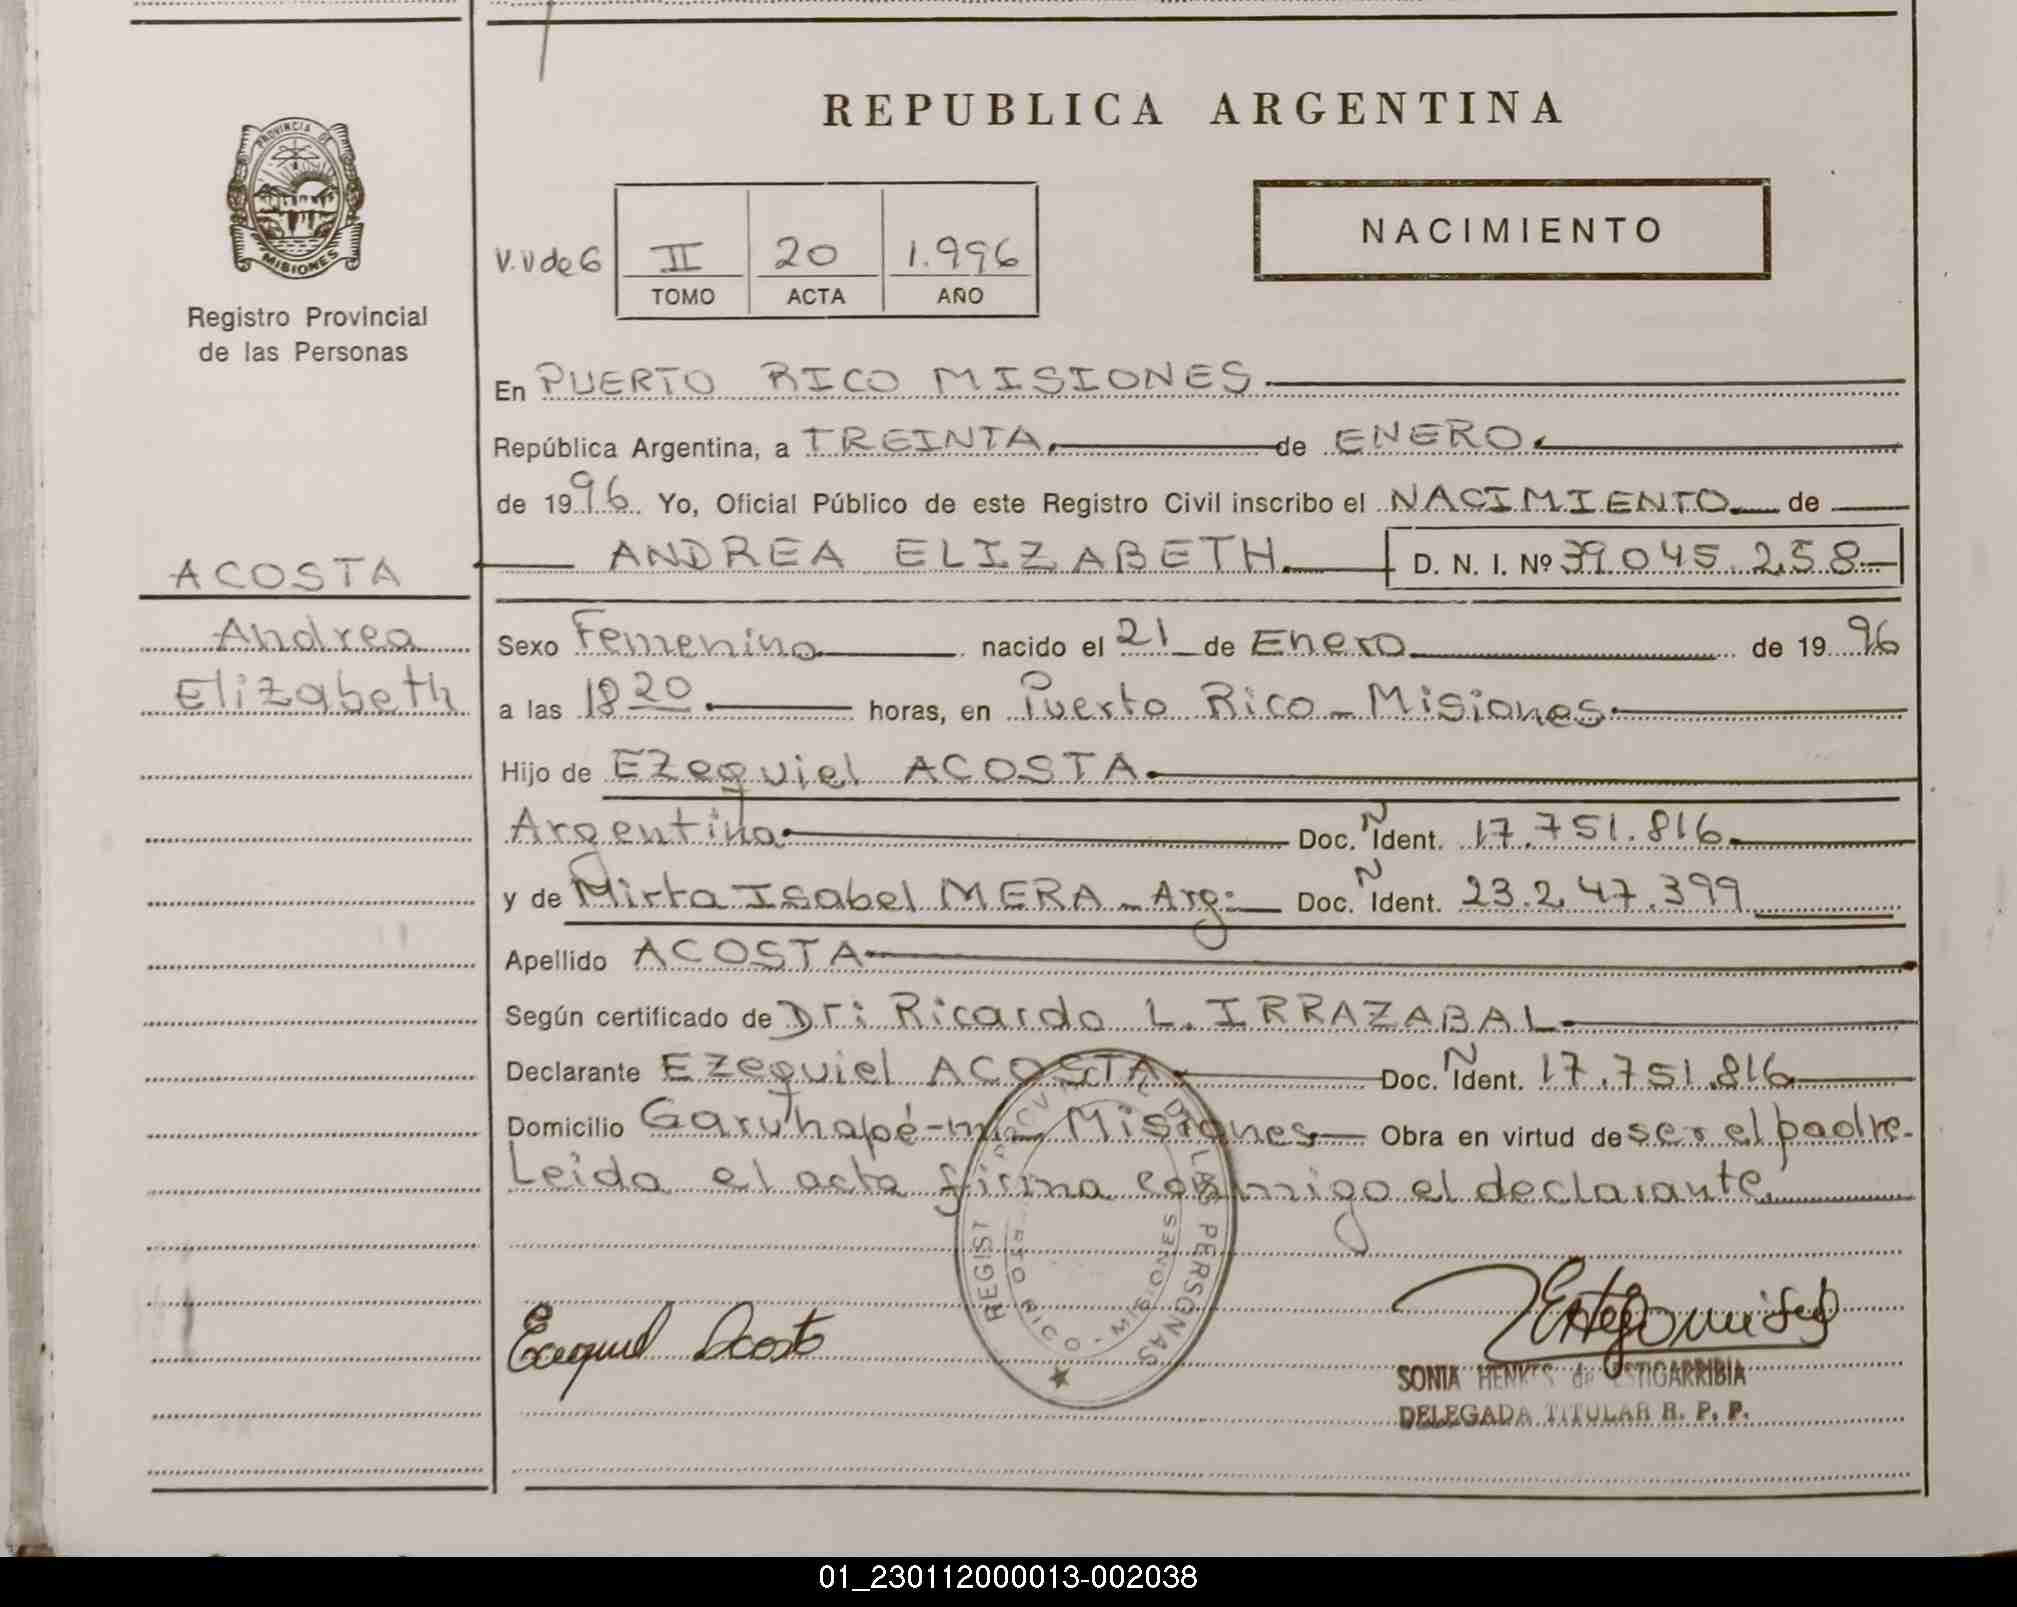 REPUBLICA ARGENTINA
PROVINCIA DE
MISIONES
Registro Provincial
de las Personas
V.V de G
II 20 1.996
TOMO ACTA AÑO
NACIMIENTO
En PUERTO RICO MISIONES
República Argentina, a TREINTA de ENERO
de 1996. Yo, Oficial Público de este Registro Civil inscribo el NACIMIENTO de
ANDREA ELIZABETH D. N. I. Nº 39.045.258
ACOSTA
Andrea
Elizabeth
Sexo Femenino nacido el 21 de Enero de 1996
a las 18 20 horas, en Puerto Rico - Misiones
Hijo de Ezequiel ACOSTA
Argentino Doc. N Ident. 17.751.816
y de Mirta Isabel MERA - Arg: Doc. N Ident. 23.247.399
Apellido ACOSTA
Según certificado de Dr: Ricardo L. IRRAZABAL
Declarante Ezequiel ACOSTA Doc. N Ident. 17.751.816
Domicilio Garuhapé-mi - Misiones Obra en virtud de ser el padre.
Leida el acta firma conmigo el declarante
REGIST DE LAS PERSONAS
RICO - MISIONES
Ezequiel Acosta
SONIA HENKES de ESTIGARRIBIA
DELEGADA TITULAR R. P. P.
01_230112000013-002038